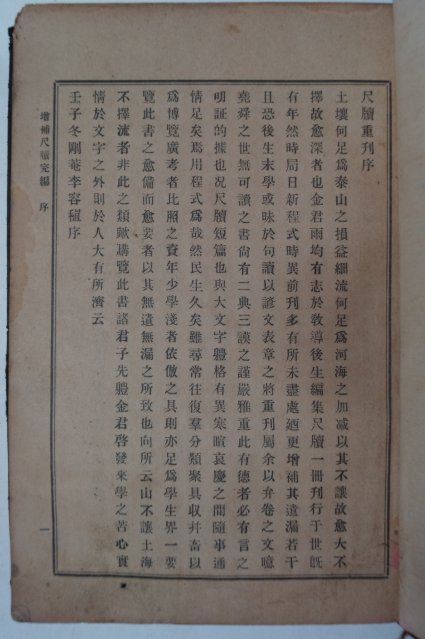 尺牘重刊序
土壤何足爲泰山之損益細流何足爲河海之加减以其不讓故愈大不
擇故愈深者也金君雨均有志於敎導後生編集尺牘一冊刊行于世旣
有年然時局日新程式時異前刊多有所未盡處廼更增補其遺漏若干
且恐後生末學或昧於句讀以諺文表章之將重刊屬余以弁卷之文噫
堯舜之世無可讀之書尙有二典三謨之謹嚴雅重此有德者必有言之
明証的據也况尺牘短篇也與大文字軆格有異寒暄哀慶之間隨事通
情足矣焉用程式爲哉然民生久矣雖尋常往復羣分類聚具收幷畜以
爲博覽廣考者比照之資年少學淺者依倣之具則亦足爲學生界一要
覽此書之愈備而愈要者以其無遺無漏之所致也向所云山不讓土海
不擇流者非此之類歟購覽此書諸君子先軆金君啓發來學之苦心實
情於文字之外則於人大有所濟云
壬子冬剛菴李容稙序
增補尺牘完編 序
一